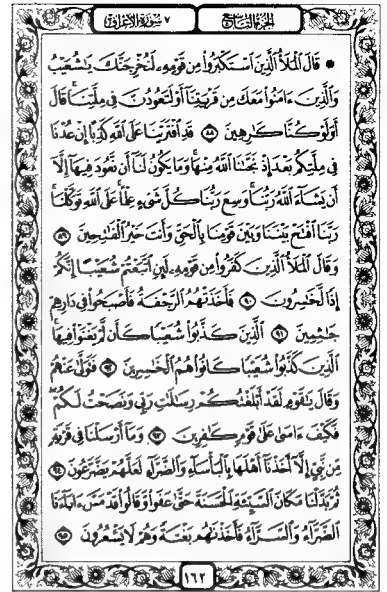 الجزء التاسع
٧ سورة الأعراف
* قَالَ ٱلۡمَلَأُ ٱلَّذِينَ ٱسۡتَكۡبَرُواْ مِن قَوۡمِهِۦ لَنُخۡرِجَنَّكَ يَٰشُعَيۡبُ
وَٱلَّذِينَ ءَامَنُواْ مَعَكَ مِن قَرۡيَتِنَآ أَوۡ لَتَعُودُنَّ فِي مِلَّتِنَاۚ قَالَ
أَوَلَوۡ كُنَّا كَٰرِهِينَ ٨٨ قَدِ ٱفۡتَرَيۡنَا عَلَى ٱللَّهِ كَذِبًا إِنۡ عُدۡنَا
فِي مِلَّتِكُم بَعۡدَ إِذۡ نَجَّىٰنَا ٱللَّهُ مِنۡهَاۚ وَمَا يَكُونُ لَنَآ أَن نَّعُودَ فِيهَآ إِلَّآ
أَن يَشَآءَ ٱللَّهُ رَبُّنَاۚ وَسِعَ رَبُّنَا كُلَّ شَيۡءٍ عِلۡمًاۚ عَلَى ٱللَّهِ تَوَكَّلۡنَاۚ
رَبَّنَا ٱفۡتَحۡ بَيۡنَنَا وَبَيۡنَ قَوۡمِنَا بِٱلۡحَقِّ وَأَنتَ خَيۡرُ ٱلۡفَٰتِحِينَ ٨٩
وَقَالَ ٱلۡمَلَأُ ٱلَّذِينَ كَفَرُواْ مِن قَوۡمِهِۦ لَئِنِ ٱتَّبَعۡتُمۡ شُعَيۡبًا إِنَّكُمۡ
إِذٗا لَّخَٰسِرُونَ ٩٠ فَأَخَذَتۡهُمُ ٱلرَّجۡفَةُ فَأَصۡبَحُواْ فِي دَارِهِمۡ
جَٰثِمِينَ ٩١ ٱلَّذِينَ كَذَّبُواْ شُعَيۡبٗا كَأَن لَّمۡ يَغۡنَوۡاْ فِيهَاۚ
ٱلَّذِينَ كَذَّبُواْ شُعَيۡبٗا كَانُواْ هُمُ ٱلۡخَٰسِرِينَ ٩٢ فَتَوَلَّىٰ عَنۡهُمۡ
وَقَالَ يَٰقَوۡمِ لَقَدۡ أَبۡلَغۡتُكُمۡ رِسَٰلَٰتِ رَبِّي وَنَصَحۡتُ لَكُمۡۖ
فَكَيۡفَ ءَاسَىٰ عَلَىٰ قَوۡمٖ كَٰفِرِينَ ٩٣ وَمَآ أَرۡسَلۡنَا فِي قَرۡيَةٖ
مِّن نَّبِيٍّ إِلَّآ أَخَذۡنَآ أَهۡلَهَا بِٱلۡبَأۡسَآءِ وَٱلضَّرَّآءِ لَعَلَّهُمۡ يَضَّرَّعُونَ ٩٤
ثُمَّ بَدَّلۡنَا مَكَانَ ٱلسَّيِّئَةِ ٱلۡحَسَنَةَ حَتَّىٰ عَفَواْ وَّقَالُواْ قَدۡ مَسَّ ءَابَآءَنَا
ٱلضَّرَّآءُ وَٱلسَّرَّآءُ فَأَخَذۡنَٰهُم بَغۡتَةٗ وَهُمۡ لَا يَشۡعُرُونَ ٩٥
١٦٢